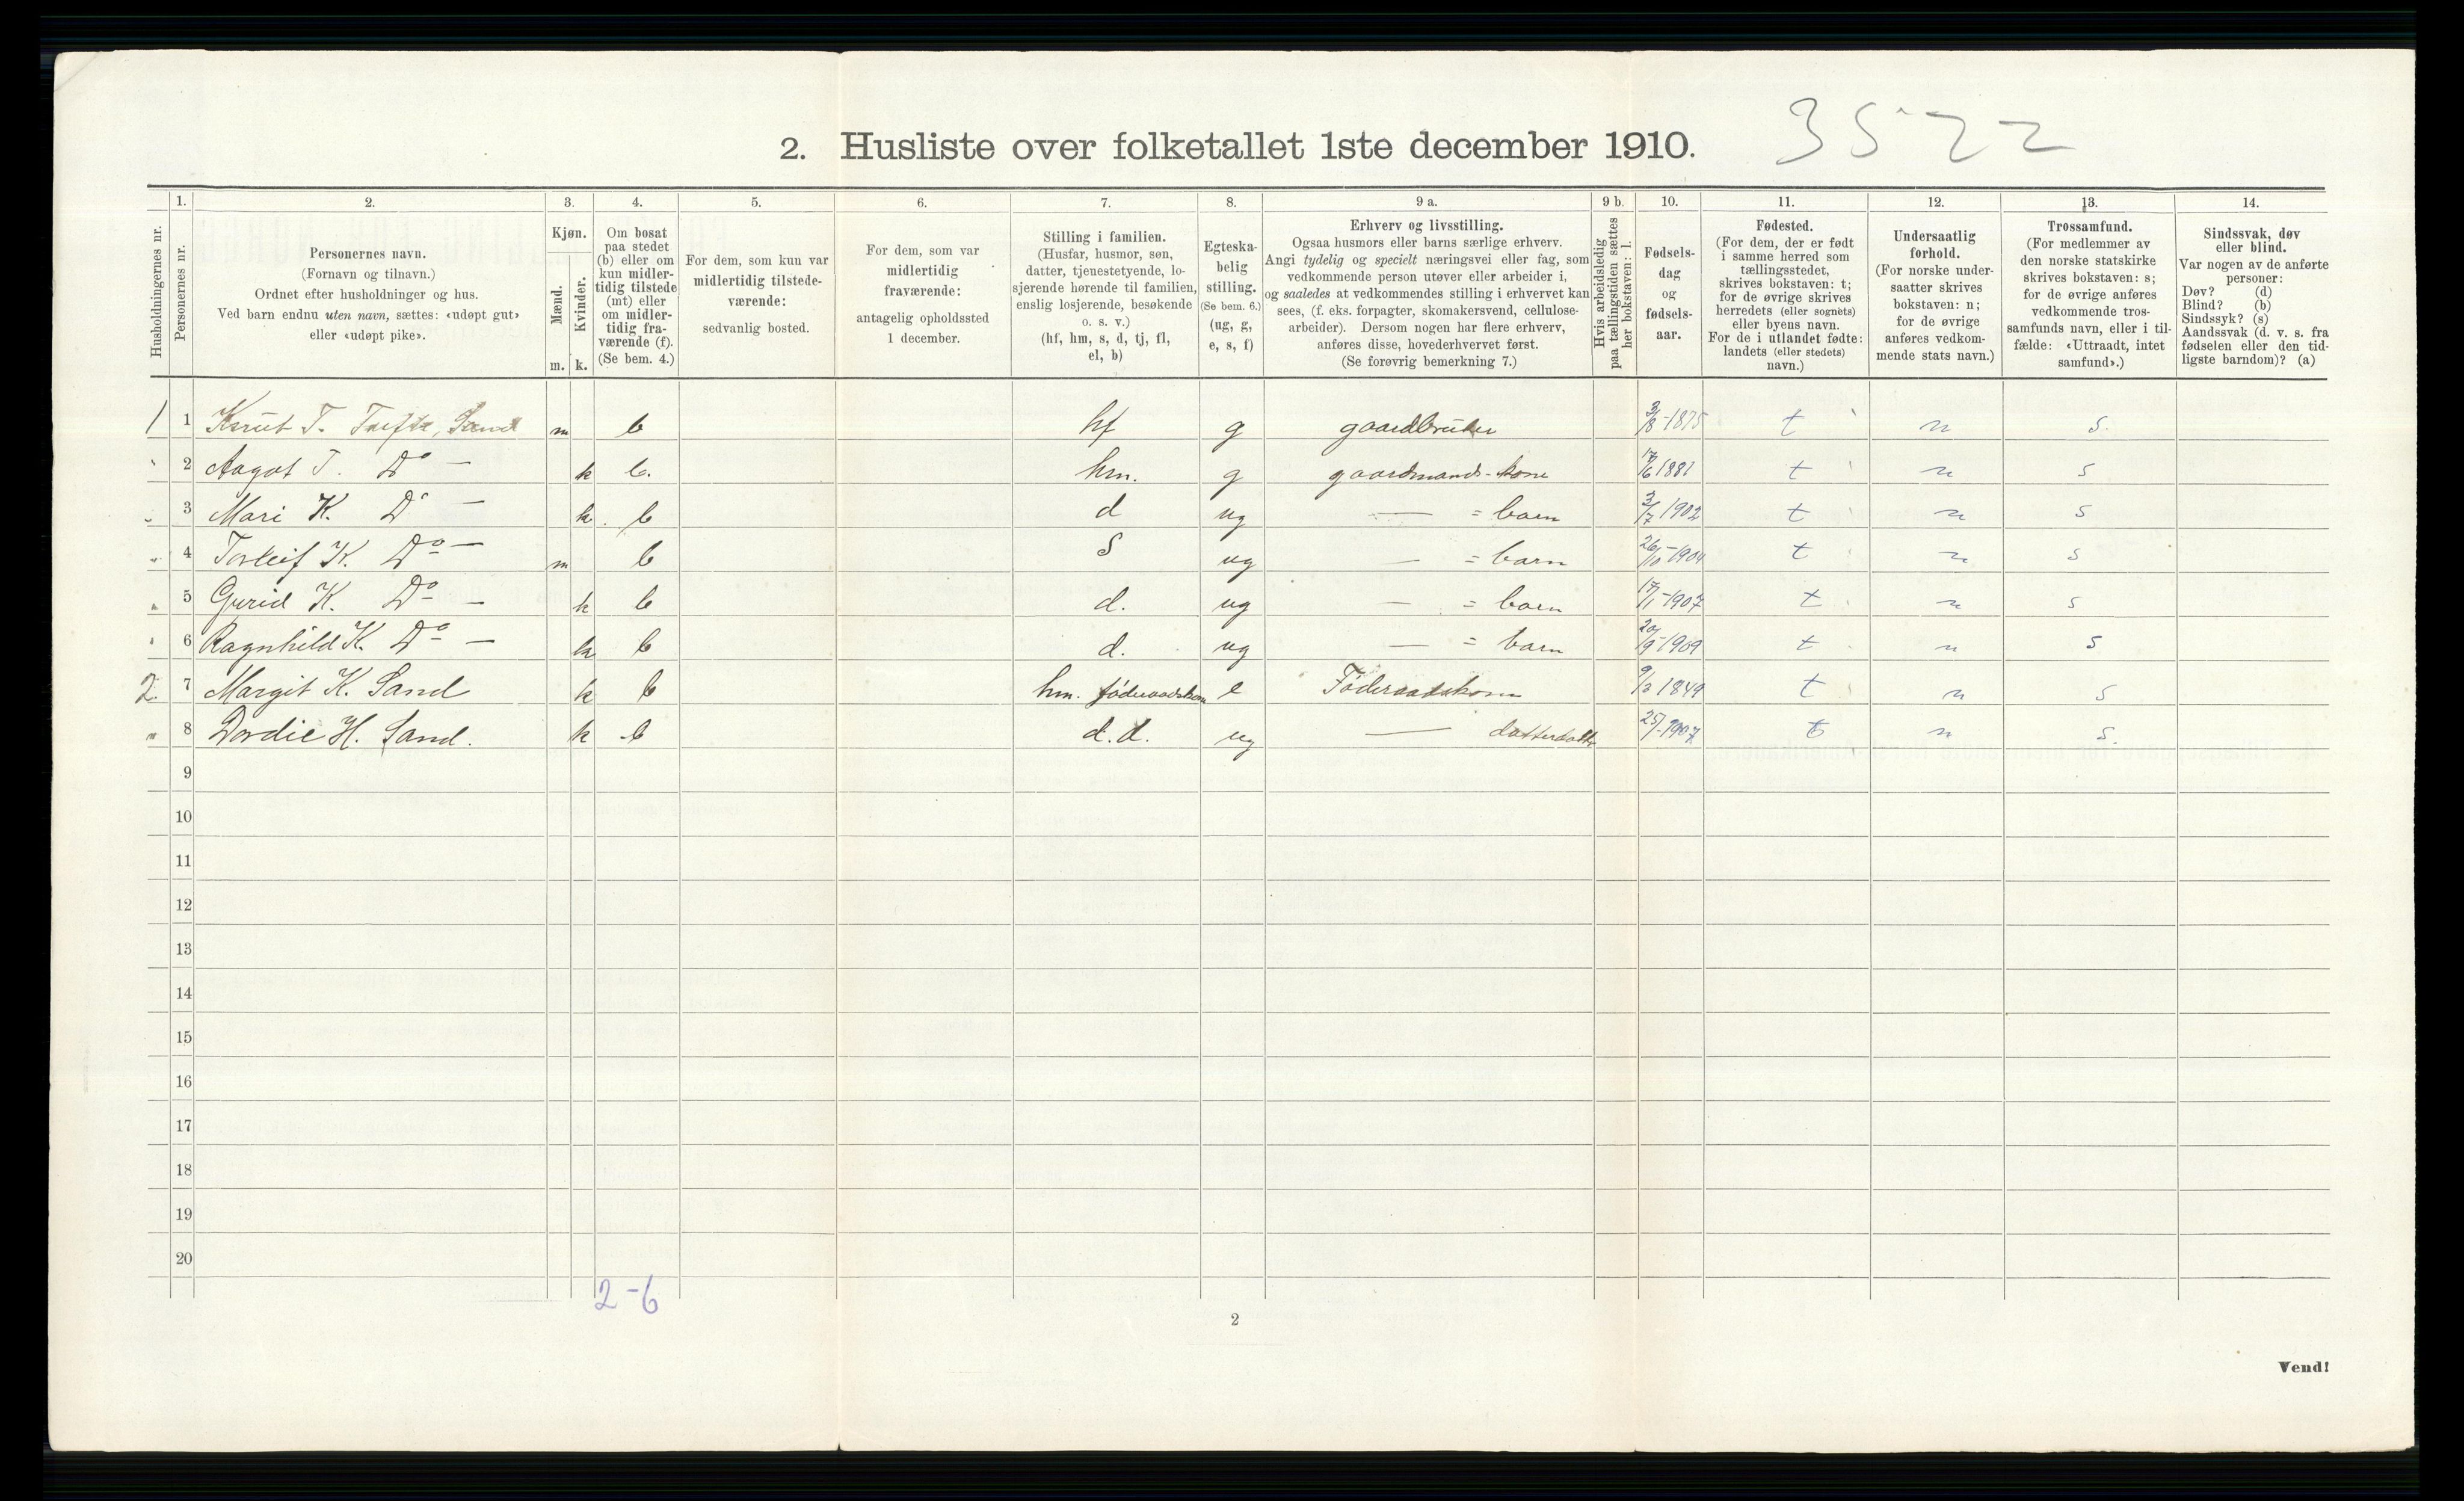 3522
2. Husliste over folketallet 1ste december 1910.
Husholdningernes nr.
1. Personernes nr.
2. Personernes navn. (Fornavn og tilnavn.) Ordnet efter husholdninger og hus. Ved barn endnu uten navn, sættes: «udøpt gut» eller «udøpt pike».
3. Kjøn. Mænd. m. Kvinder. k.
4. Om bosat paa stedet (b) eller om kun midlertidig tilstede (mt) eller om midlertidig fraværende (f). (Se bem. 4.)
5. For dem, som kun var midlertidig tilstedeværende: sedvanlig bosted.
6. For dem, som var midlertidig fraværende: antagelig opholdssted 1 december.
7. Stilling i familien. (Husfar, husmor, søn, datter, tjenestetyende, losjerende hørende til familien, enslig losjerende, besøkende o. s. v.) (hf, hm, s, d, tj, fl, el, b)
8. Egteskabelig stilling. (Se bem. 6.) (ug, g, e, s, f)
9 a. Erhverv og livsstilling. Ogsaa husmors eller barns særlige erhverv. Angi tydelig og specielt næringsvei eller fag, som vedkommende person utøver eller arbeider i, og saaledes at vedkommendes stilling i erhvervet kan sees, (f. eks. forpagter, skomakersvend, cellulosearbeider). Dersom nogen har flere erhverv, anføres disse, hovederhvervet først. (Se forøvrig bemerkning 7.)
9 b. Hvis arbeidsledig paa tællingstiden sættes her bokstaven: l.
10. Fødselsdag og fødselsaar.
11. Fødested. (For dem, der er født i samme herred som tællingsstedet, skrives bokstaven: t; for de øvrige skrives herredets (eller sognets) eller byens navn. For de i utlandet fødte: landets (eller stedets) navn.)
12. Undersaatlig forhold. (For norske undersaatter skrives bokstaven: n; for de øvrige anføres vedkommende stats navn.)
13. Trossamfund. (For medlemmer av den norske statskirke skrives bokstaven: s; for de øvrige anføres vedkommende trossamfunds navn, eller i tilfælde: «Uttraadt, intet samfund».)
14. Sindssvak, døv eller blind. Var nogen av de anførte personer: Døv? (d) Blind? (b) Sindssyk? (s) Aandssvak (d. v. s. fra fødselen eller den tidligste barndom)? (a)
1 1 Knut T. Sand m b hf g gaardbruker 3/8-1875 t n s.
2 Aagot T. Do — k b. hm. g gaardmands-kone 17/6 1881 t n s
3 Mari K. Do — k. b d ug — = barn 3/7 1902 t n s
4 Torleif K. Do — m b S ug — = barn 26/10-1904 t n s
5 Gurid K. Do — k b d. ug — = barn 17/1-1907 t n s
6 Ragnhild K. Do — k b d. ug — = barn 20/9-1909 t n s
2. 7 Margit K. Sand k b hm. föderaadskone e Föderaadskone 1849 t n s
8 Dordie H. Sand. k b d.d. ug — datterdatter 1907 t n s.
9
10
11
12
13
14
15
16
17
18
19
20
2-6
2
Vend!